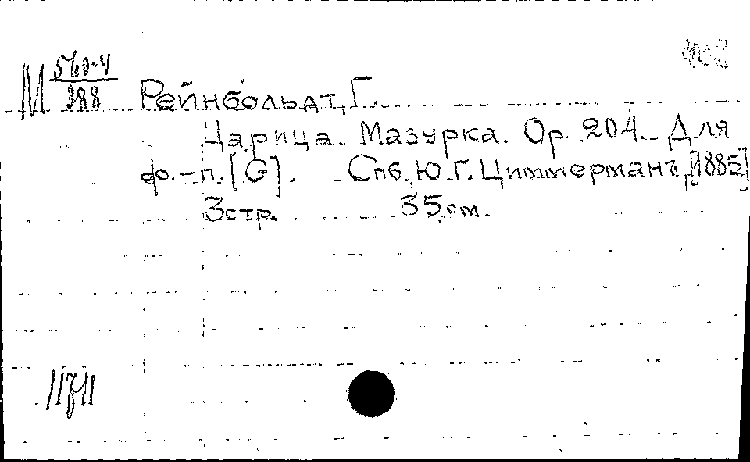 М 560-4/388
Рейнбольдт, Г.
Царица. Мазурка. Ор. 204. Для
фо.-п. [G]. Спб, Ю.Г. Циммерманъ, [1885]
3 стр. 35 см.